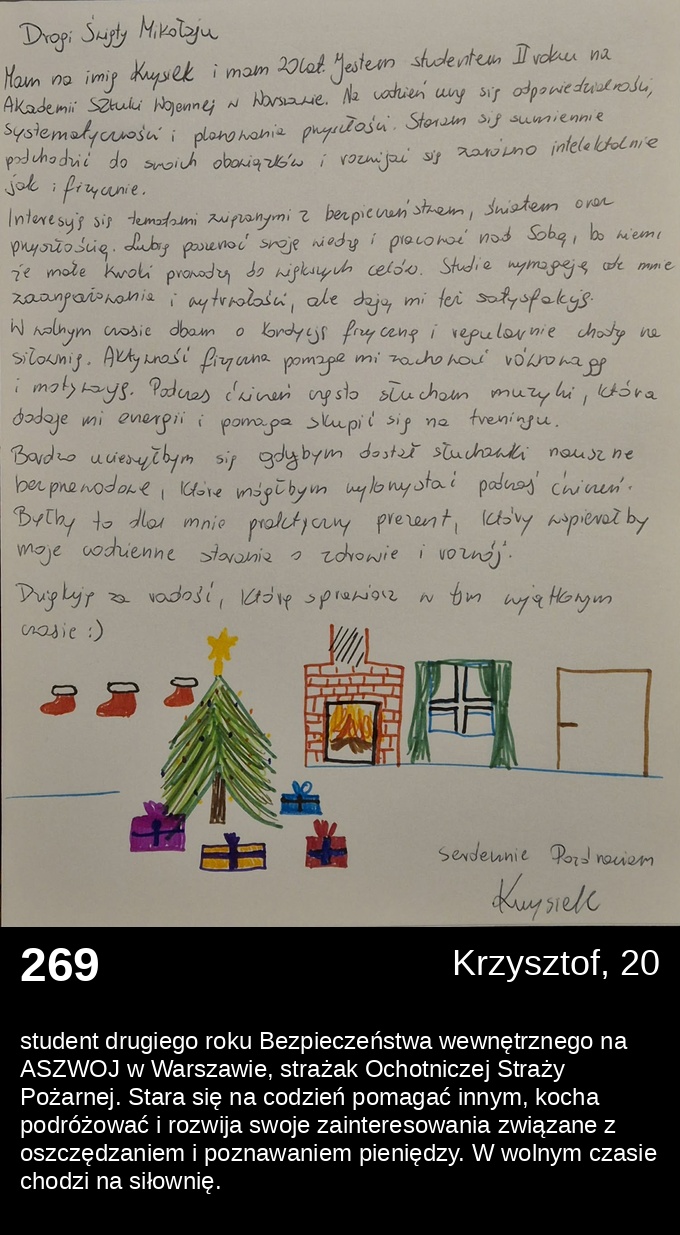 Drogi Święty Mikołaju
Mam na imię Krzysiek i mam 20 lat. Jestem studentem II roku na
Akademii Sztuki Wojennej w Warszawie. Na codzień uczę się odpowiedzialności,
systematyczności i planowania przyszłości. Staram się sumiennie
podchodzić do swoich obowiązków i rozwijać się zarówno intelektalnie
jak i fizycznie.
Interesuję się tematami związanymi z bezpieczeństwem, światem oraz
przyszłością. Lubię poszerzać swoją wiedzę i pracować nad Sobą, bo wiem,
że małe kroki prowadzą do większych celów. Studia wymagają ode mnie
zaangażowania i wytrwałości, ale dają mi też satysfakcję.
W wolnym czasie dbam o kondycję fizyczną i regularnie chodzę na
siłownię. Aktywność fizyczna pomaga mi zachować równowagę
i motywację. Podczas ćwiczeń często słucham muzyki, która
dodaje mi energii i pomaga skupić się na treningu.
Bardzo ucieszyłbym się gdybym dostał słuchawki nauszne
bezprzewodowe, które mógłbym wykorzystać podczas ćwiczeń.
Byłby to dla mnie praktyczny prezent, który wspierałby
moje codzienne starania o zdrowie i rozwój.
Dziękuję za radość, którą sprawiasz w tym wyjątkowym
czasie :)
serdecznie Pozdrawiam
Krzysiek
269
Krzysztof, 20
student drugiego roku Bezpieczeństwa wewnętrznego na
ASZWOJ w Warszawie, strażak Ochotniczej Straży
Pożarnej. Stara się na codzień pomagać innym, kocha
podróżować i rozwija swoje zainteresowania związane z
oszczędzaniem i poznawaniem pieniędzy. W wolnym czasie
chodzi na siłownię.